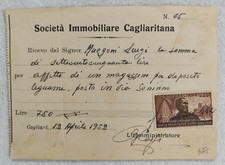 N. 05
Società Immobiliare Cagliaritana
Ricevo dal Signor Muggoni Luigi la somma
di settecentocinquanta lire
per affitto di un magazzino per deposito
legname, posto in Via Sonnino
Lire 750
Cagliari, 12 Aprile 1952
L'Amministratore